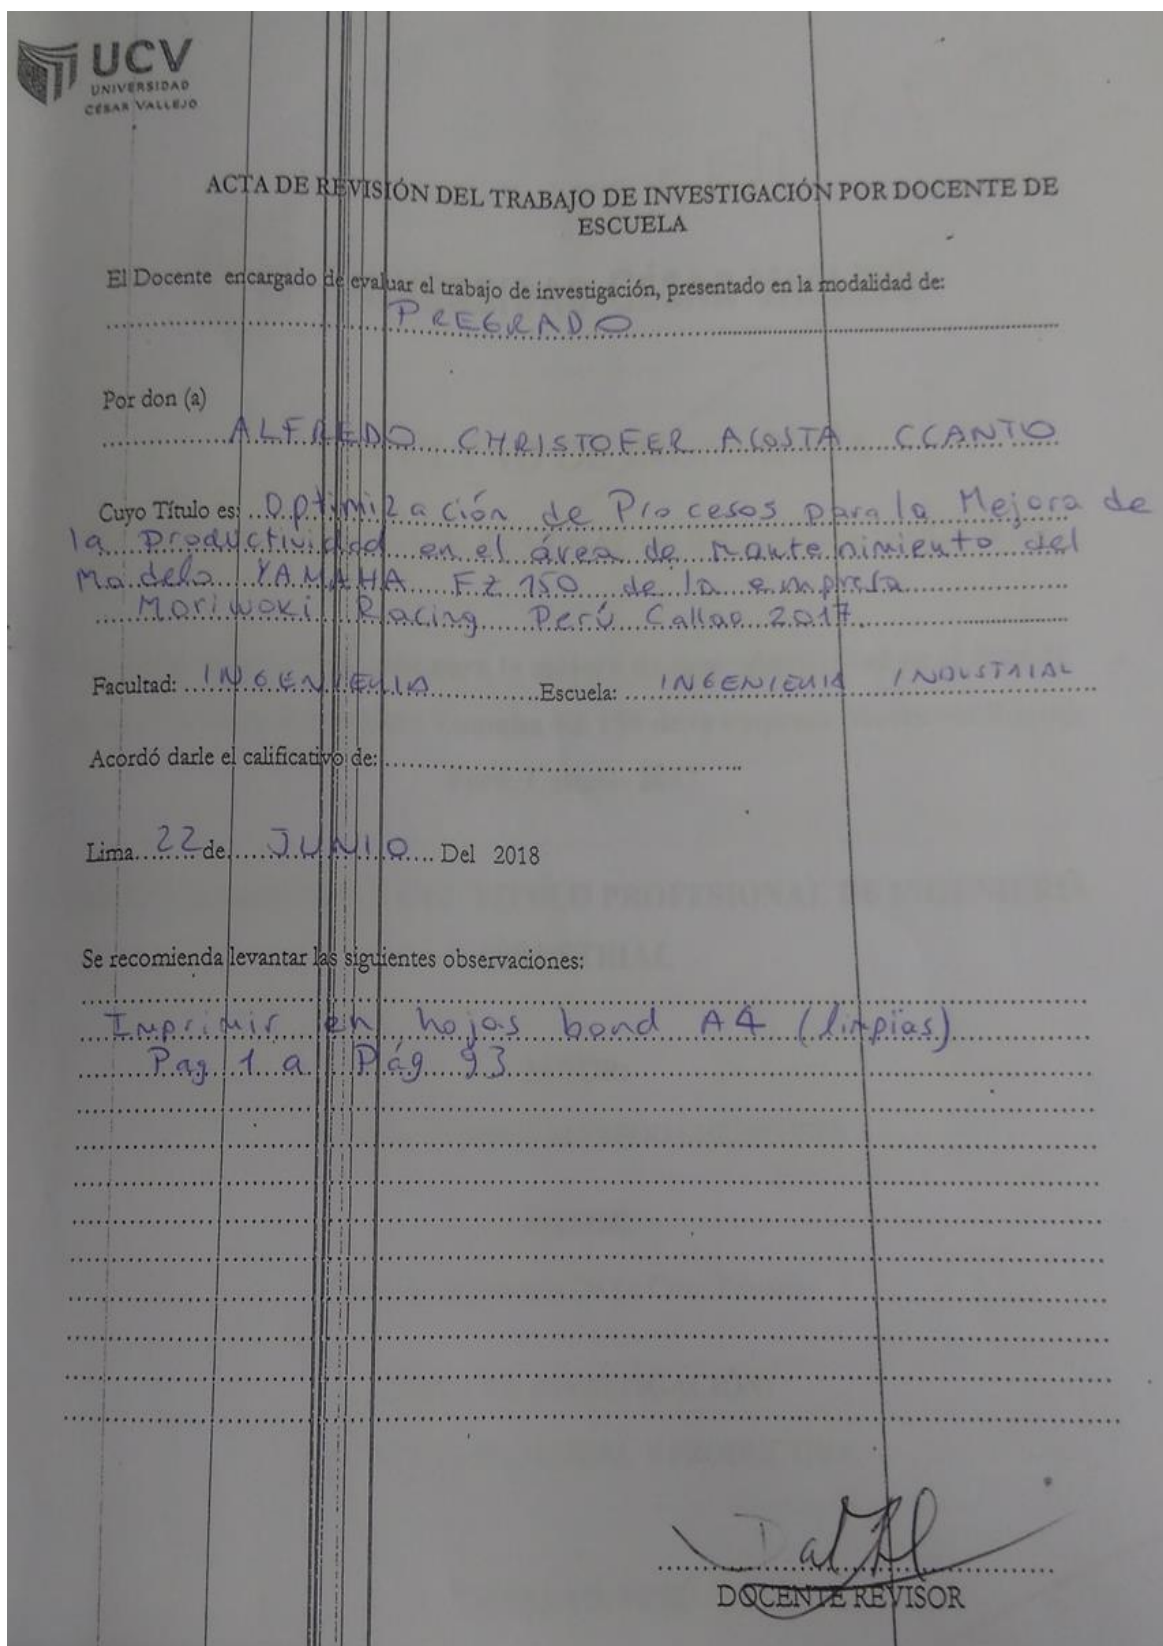 UCV
UNIVERSIDAD
CÉSAR VALLEJO
ACTA DE REVISIÓN DEL TRABAJO DE INVESTIGACIÓN POR DOCENTE DE
ESCUELA
El Docente encargado de evaluar el trabajo de investigación, presentado en la modalidad de:
PREGRADO
Por don (a)
ALFREDO CHRISTOFER ACOSTA CCANTO
Cuyo Título es: Optimización de Procesos para la Mejora de
la Productividad en el área de mantenimiento del
Modelo YAMAHA FZ 150 de la empresa
Moriwoki Racing Perú Callao 2017
Facultad: INGENIERIA Escuela: INGENIERIA INDUSTRIAL
Acordó darle el calificativo de:
Lima 22 de JUNIO Del 2018
Se recomienda levantar las siguientes observaciones:
Imprimir en hojas bond A4 (limpias)
Pag 1 a Pág 93
DOCENTE REVISOR